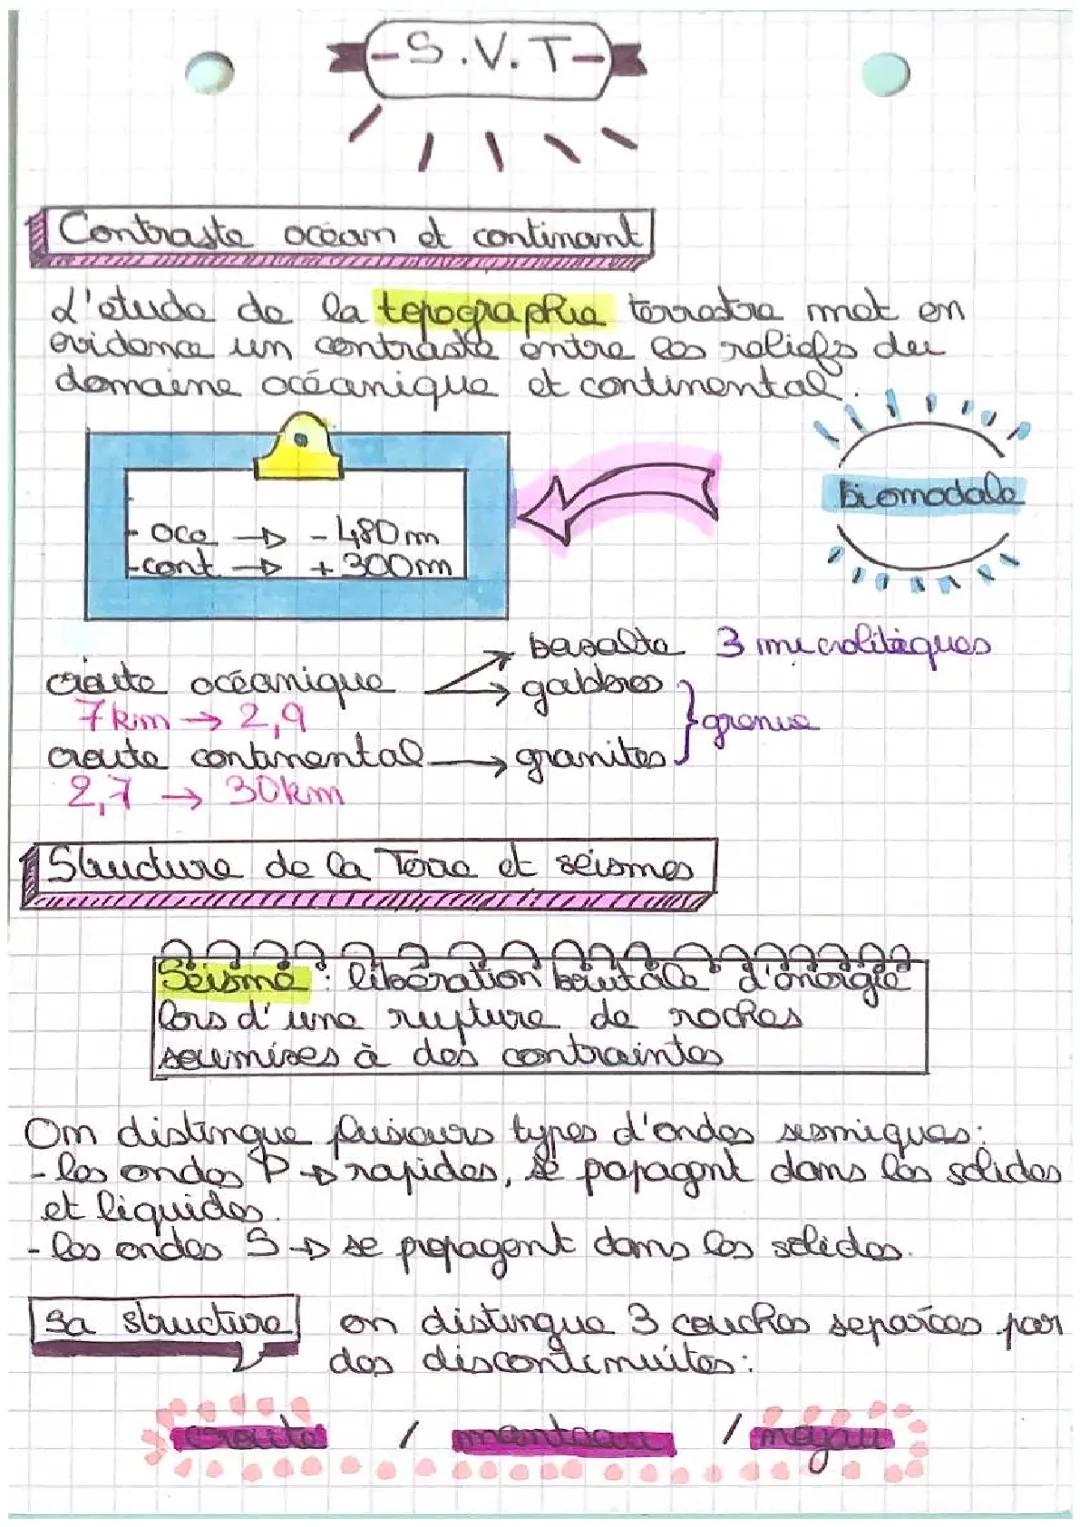 -S.V.T-
Contraste océan et continant
L'étude de la topographie terrestre met en
évidence un contraste entre les reliefs du
domaine océanique et continental.
- oce → - 480m
- cont → + 300m
biomodale
basalte 3 microlitiques
croute océanique
gabbros
7 km → 2,9
grenue
croute continental → granites
2,7 → 30km
Structure de la Terre et séismes
Séisme : libération brutale d'énergie
lors d'une rupture de roches
soumises à des contraintes
On distingue plusieurs types d'ondes sismiques:
- les ondes P → rapides, se propagent dans les solides
et liquides.
- les ondes S → se propagent dans les solides.
sa structure
on distingue 3 couches séparées par
des discontinuités:
croute / manteau / noyau